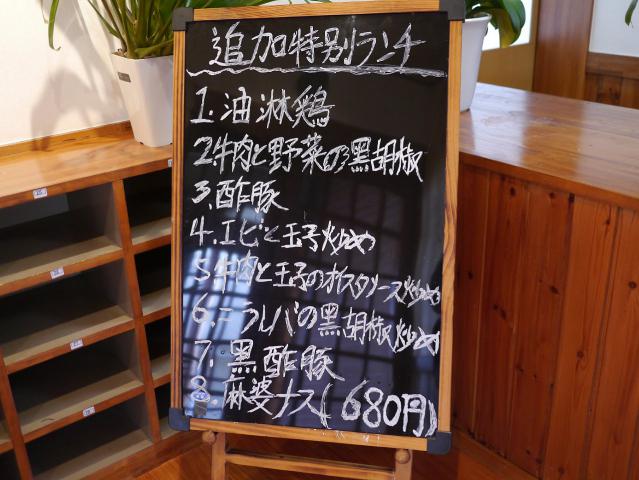 追加特別ランチ
1.油淋鶏
2.牛肉と野菜の黒胡椒
3.酢豚
4.エビと玉子炒め
5.牛肉と玉子のオイスタソース炒め
6.ニラレバの黒胡椒炒め
7.黒酢豚
8.麻婆ナス(680円)